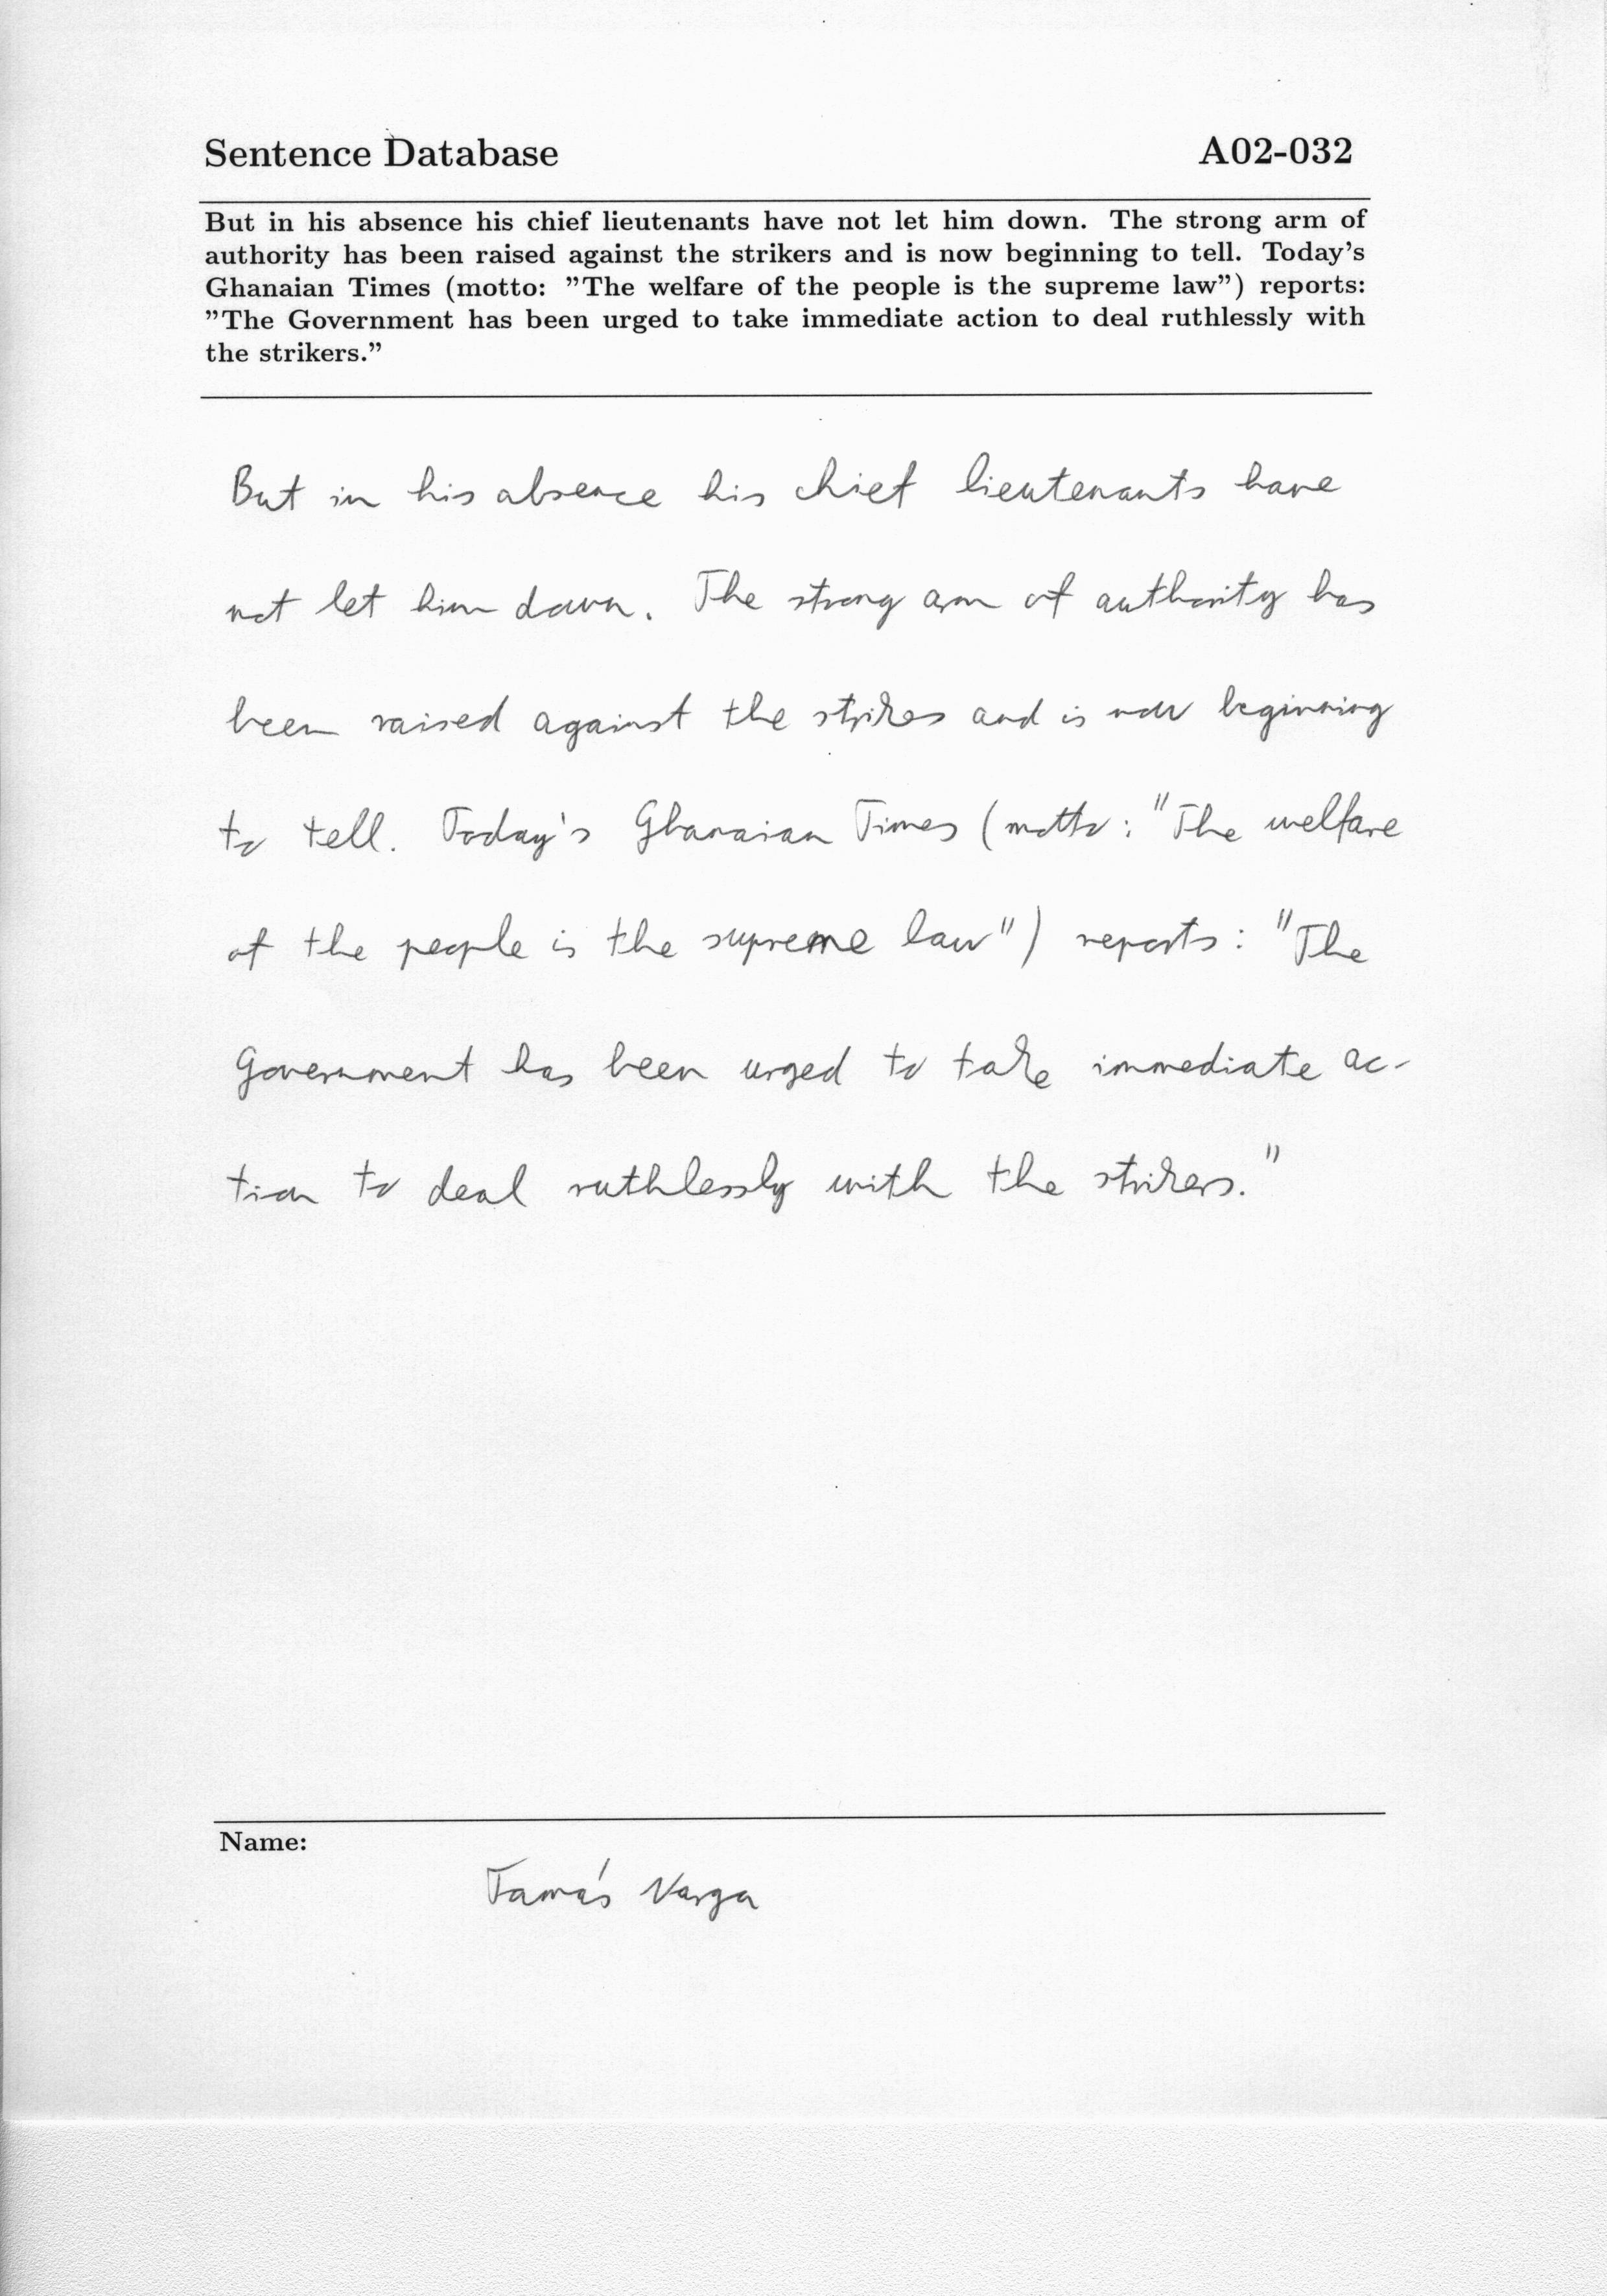 Sentence Database A02-032
But in his absence his chief lieutenants have not let him down. The strong arm of
authority has been raised against the strikers and is now beginning to tell. Today's
Ghanaian Times (motto: "The welfare of the people is the supreme law") reports:
"The Government has been urged to take immediate action to deal ruthlessly with
the strikers."
But in his absence his chief lieutenants have
not let him down. The strong arm of authority has
been raised against the strikes and is now beginning
to tell. Today's Ghanaian Times (motto: "The welfare
of the people is the supreme law") reports: "The
Government has been urged to take immediate ac-
tion to deal ruthlessly with the strikers."
Name:
Tamás Varga